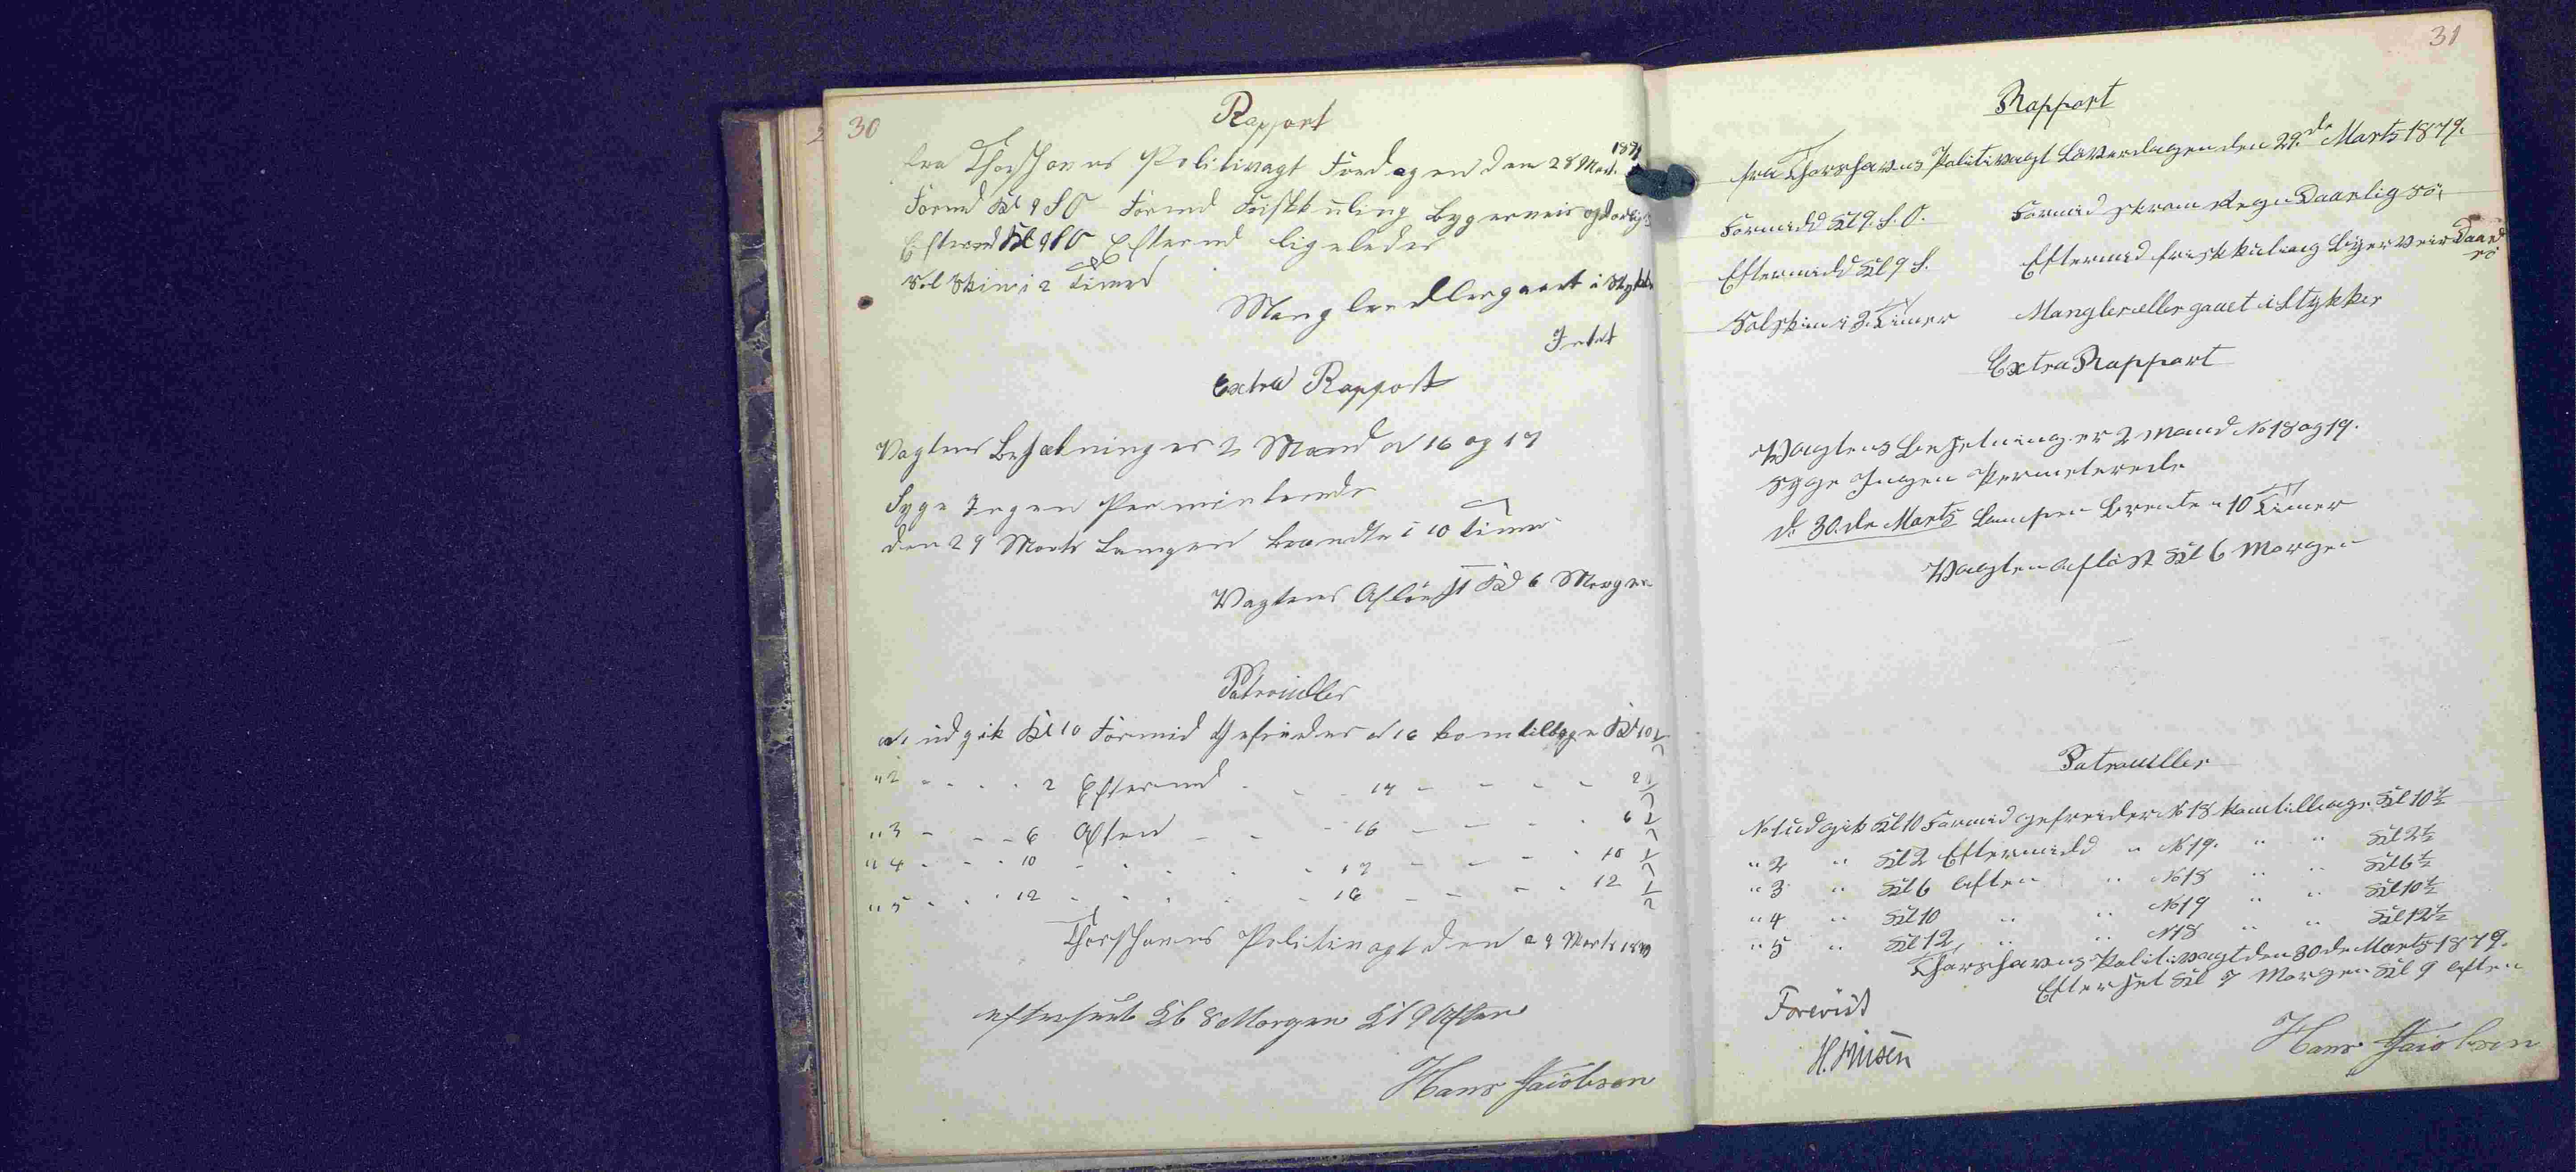 30
Rapport
fra Thorshavns Politivagt Fredagen den 28 Mart. 1879
Formd Kl 9 S O Formd Frisk kuling bygerveir og daarlig sö
Eftermd Kl 9 S O Eftermd ligeledes
Sol Skin i 2 Timer
Mangler Eller gaaet i Stykker
Intet
Extra Rapport
Vagtens Besætning er 2 Mand N 16 og 17
Syge Ingen Permitterede
den 29 Marts Lampen brændte i 10 Timer
Vagtens Aflöst Kl 6 Morgen
Patrouiller
N1 udgik Kl 10 Formid Gefreider N 16 kom tilbage Kl 10 1/2
" 2 - - - - 2 Eftermd - - - 17 - - - - 2 1/2
" 3 - - - 6 Aften - - - 16 - - - - 6 1/2
" 4 - - - 10 - - - - - 17 - - - - 10 1/2
" 5 - - - 12 - - - - - 16 - - - - 12 1/2
Thorshavns Politivagt den 29 Marts 1879
efterseet Kl 8 Morgen Kl 9 Aften
Hans Jacobsen
31
Rapport
fra Thorshavns Politivagt Löverdagen den 29.de Marts 1879.
Formidd Kl 9. S. O. Formid strom Regn Daarlig sö,
Eftermidd Kl 9 S. Eftermid frisk kuling Bygerveir Daarl sö
Solskin i 3. Timer Mangler eller gaaet i Stykker
Extra Rapport
Vagtens Besetning er 2 Mand No 18 og 19.
Syge Ingen Permeterede
d. 30.de Marts Lampen Brente i 10 Timer
Vagten aflöst Kl 6 Morgen
Patrouller
No 1 udgik Kl 10 Formid gefreider No 18 kom tilbage Kl 10 1/2
" 2 " Kl 2 Eftermidd " No 19. " " Kl 2 1/2
" 3 " Kl 6 Aften " No 18 " " Kl 6 1/2
" 4 " Kl 10 " " No 19 " " Kl 10 1/2
" 5 " Kl 12, " " N 18 " " Kl 12 1/2
Thorshavns Politivagt den 30 de Marts 1879.
Efterset Kl 7 Morgen Kl 9 Aften
Forevist
H. Finsen
Hans Jacobsen